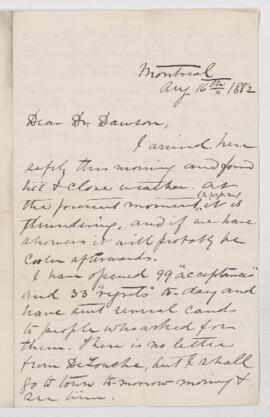 Montreal
Aug 16th 1882
Dear Dr. Dawson,
I arrived here
safely this morning and found
hot & close weather. At
the present moment, it is
thundering, and if we have
showers it will probably be
cooler afterwards.
I have opened 99 "acceptances"
and 33 "regrets" to-day and
have sent several cards
to people who asked for
them. There is no letter
from DeLouche, but I shall
go to town to-morrow morning &
see him.